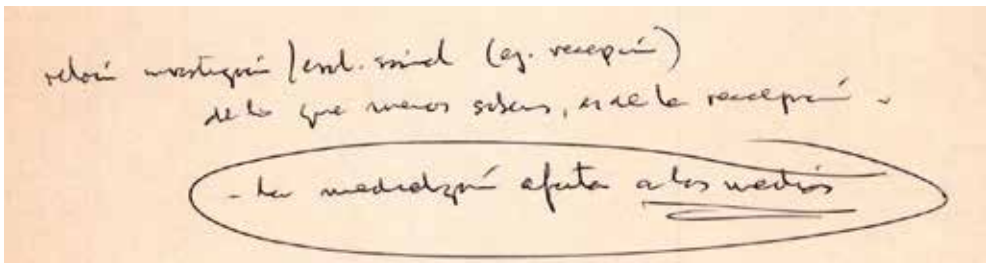 relación investigación / evol. social (ej. recepción)
de lo que menos sabemos, es de la recepción.
- La mediatización afecta a los medios